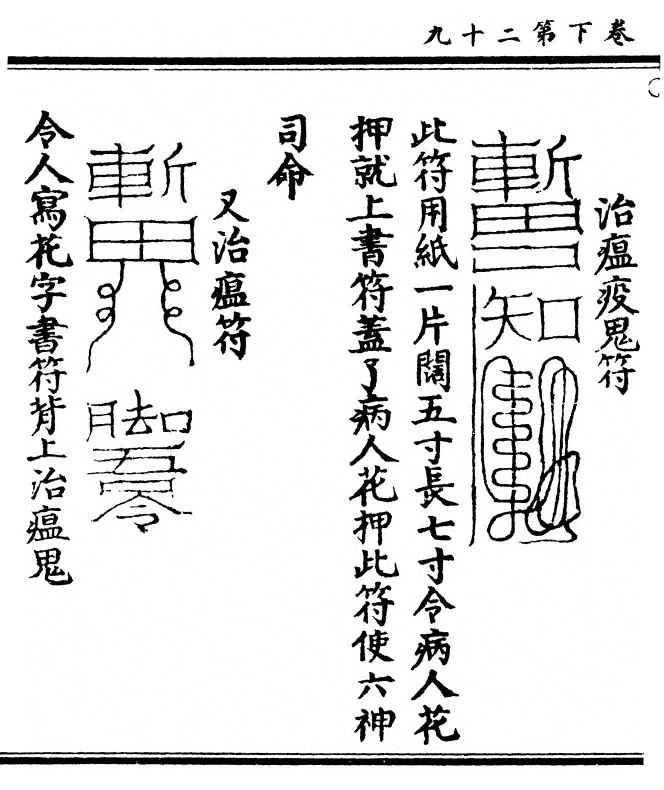 卷下第二十九
治瘟疫鬼符
此符用紙一片闊五寸長七寸令病人花
押就上書符蓋了病人花押此符使六神
司命
又治瘟符
令人寫花字書符背上治瘟鬼